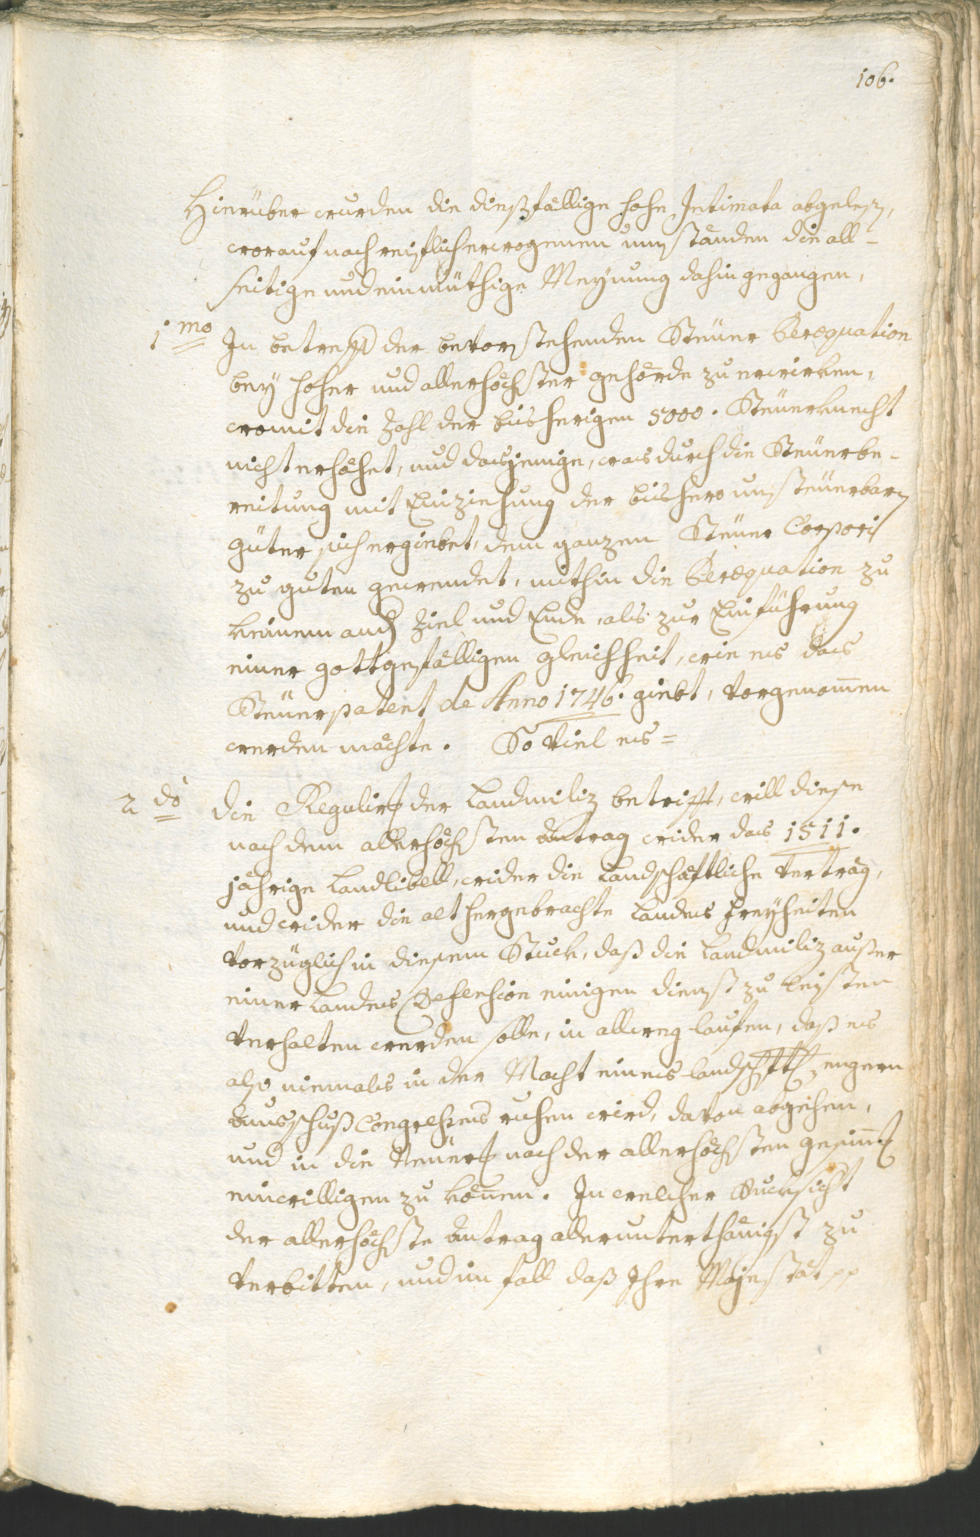 106.
Hierüber wurden die dießfällige hohe Intimata abgelesen,
worauf nach reiflich erwogenen umständen die all-
seitige und einmüthige Meynung dahin gegangen,
1mo In betreff der bevorstehenden Steuer Peræquation
bey hoher und allerhöchster gehörde zu erwirken,
womit die Zahl der bisherigen 5000. Steuerknecht
nicht erhöhet, und dasjenige, was durch die Steuerbe-
reitung mit Einziehung der bishero unsteuerbaren
güter sich ergiebet, dem ganzen Steuer Corpori
zu guten gewendet, mithin die Peræquation zu
keinem and Ziel und Ende, als zur Einführung
einer gottgefälligen gleichheit, wie es das
Steuerpatent de Anno 1746. giebt, vorgenom̄en
werden möchte. So viel es=
2do die Regulirg der Landmiliz betrift, will diese
nach dem allerhöchsten Antrag wider das 1511.
jährige Landlibell, wider die Landschaftliche Verträg,
und wider die alt hergebrachte Landes freyheiten
vorzüglich in diesem Stuck, daß die Landmiliz außer
einer Landes Defension einigen dienst zu leisten
verhalten werden solle, in allweg laufen, daß es
also niemals in der Macht eines landschftl engern
Ausschuß Congreßes ruhen wird, davon abgehen,
und in die Neuerg nach der allerhöchsten gesinng
einwilligen zu kön̄en. In welcher Rucksicht
der allerhöchste Antrag alleruntterthänigst zu
verbitten, und im fall daß Ihre Majestät pp